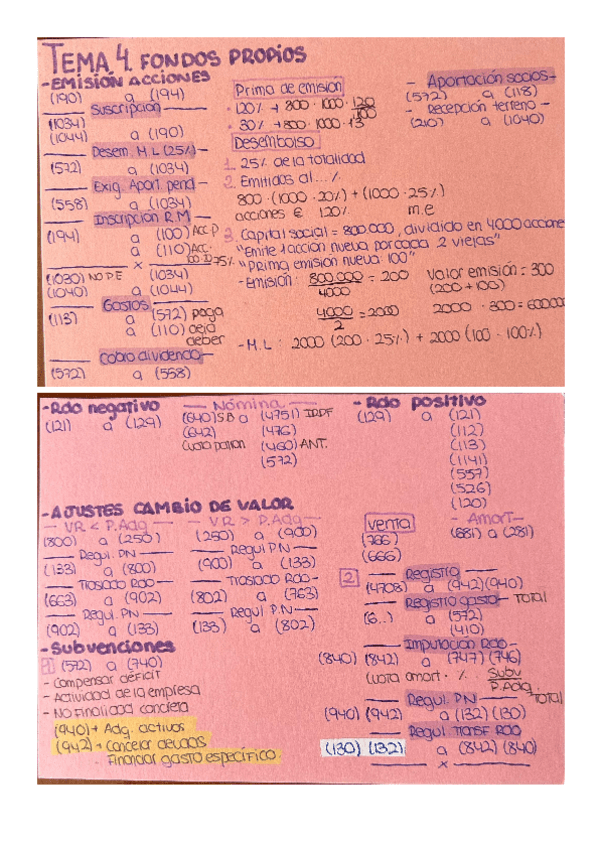 TEMA 4. FONDOS PROPIOS
- EMISIÓN ACCIONES
(190) a (194)
Suscripción
(1034)
(1044) a (190)
Desem. M.L (25%)
(572) a (1034)
Exig. Aport. pend
(558) a (1034)
Inscripción R.M
(194) a (100) ACC.D
a (110) ACC.
x
75%
(1030) NO PE (1034)
(1040) a (1044)
Gastos
(113) a (572) paga
a (410) deja deber
Cobro dividendo
(572) a (558)
Prima de emisión
· 120% → 800 · 1000 · 120/100
· 30% → 800 · 1000 · 1'3
Desembolso
1. 25% de la totalidad
2. Emitidos al ...%
800 · (1000 · 20%) + (1000 · 25%)
acciones € 120% m.e
3. Capital social = 800.000, dividido en 4000 acciones
"Emite 1 acción nueva por cada 2 viejas"
"Prima emisión nueva 100"
- Emisión: 800.000/4000 = 200 Valor emisión = 300
(200 + 100)
4000/2 = 2000 2000 · 300 = 600000
- M.L: 2000 (200 · 25%) + 2000 (100 · 100%)
- Aportación socios -
(572) a (118)
- Recepción terreno -
(210) a (1040)
- Rdo negativo
(121) a (129)
Nómina
(640) S.B a (4751) IRPF
(642) (476)
Cuota patron (460) ANT.
(572)
- Rdo positivo
(129) a (121)
(112)
(113)
(1141)
(557)
(526)
(120)
- AJUSTES CAMBIO DE VALOR
VR < P.Adq
(800) a (250)
Regul. PN
(133) a (800)
Traslado Rdo
(663) a (902)
Regul. PN
(902) a (133)
VR > P.Adq
(250) a (900)
Regul PN
(900) a (133)
Traslado Rdo
(802) a (763)
Regul P.N
(133) a (802)
Venta
(766)
(666)
- Amort -
(681) a (281)
- Subvenciones
1 (572) a (740)
- Compensar déficit
- Actividad de la empresa
- No finalidad concreta
(940) → Adq. activos
(942) → Cancelar deudas
- Financiar gasto específico
2 Registro
(4708) a (942) (940)
Registro gasto TOTAL
(6..) a (572)
(410)
Imputación Rdo
(840) (842) a (747) (746)
Cuota amort · % · Subv/P.Adq
Regul. PN TOTAL
(940) (942) a (132) (130)
Regul Transf Rdo
(130) (132) a (842) (840)
x